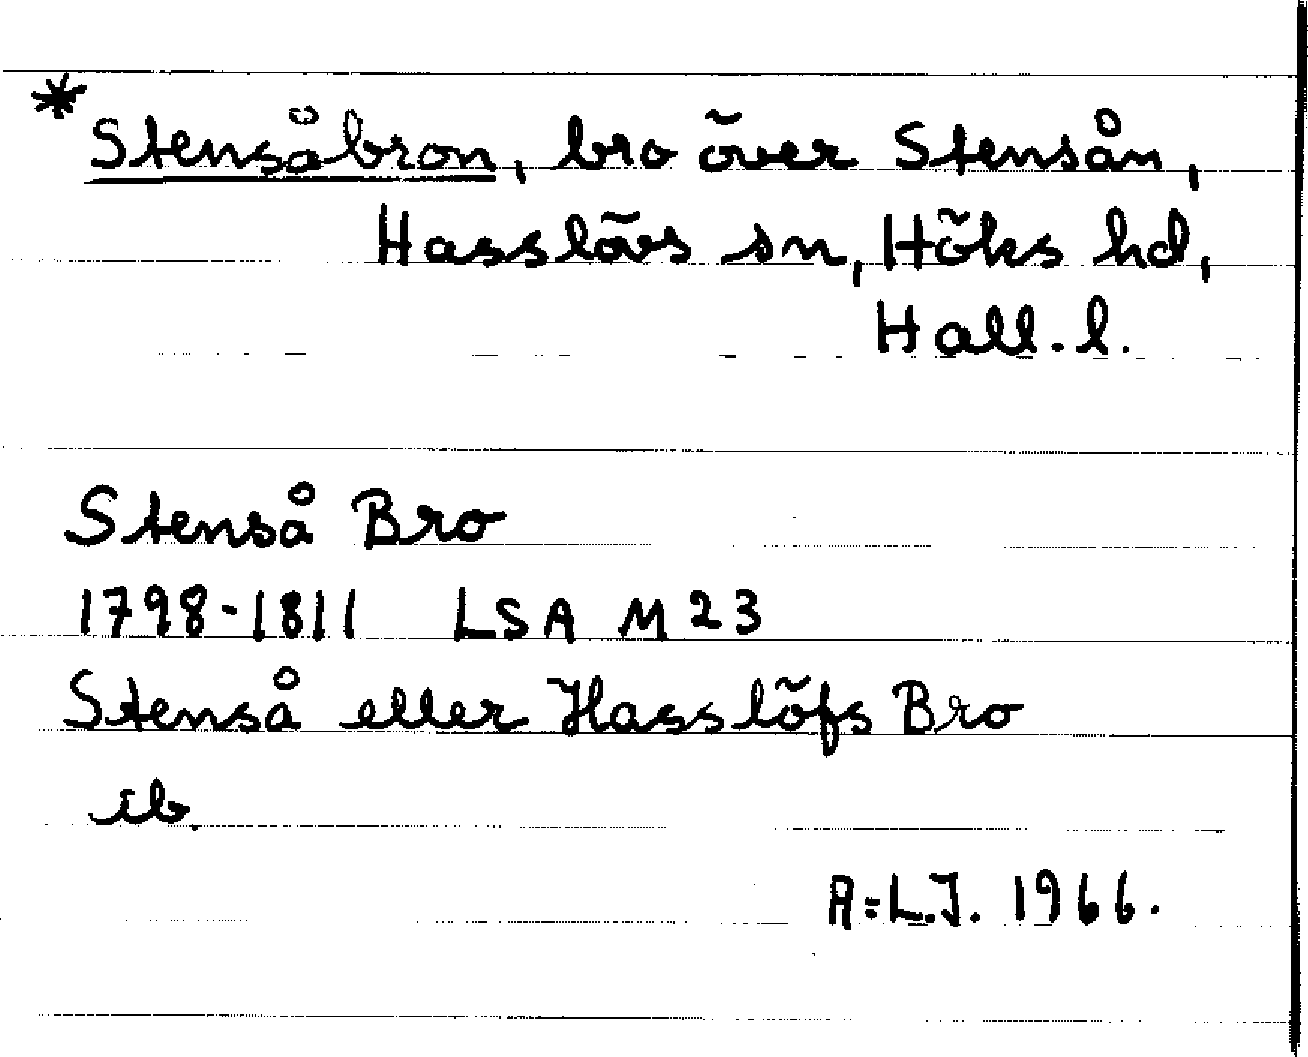 * Stensåbron, bro över Stensån,
Hasslövs sn, Höks hd,
Hall. l.
Stenså Bro
1798-1811 LSA M 23
Stenså eller Hasslöfs Bro
ib.
A=L.J. 1966.